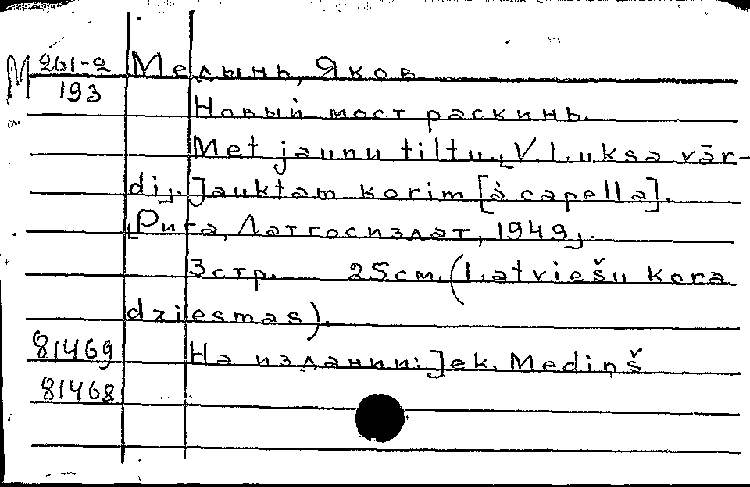 М 261-2 Медынь, Яков
193
Новый мост раскинь.
Met jaunu tiltu. [V. Luksa vār-
di]. Jauktam korim [à capella].
[Рига, Латгосиздат, 1949].
3 стр. 25 см. (Latviešu kora
dziesmas).
81469 На издании: Jek. Mediņš
81468